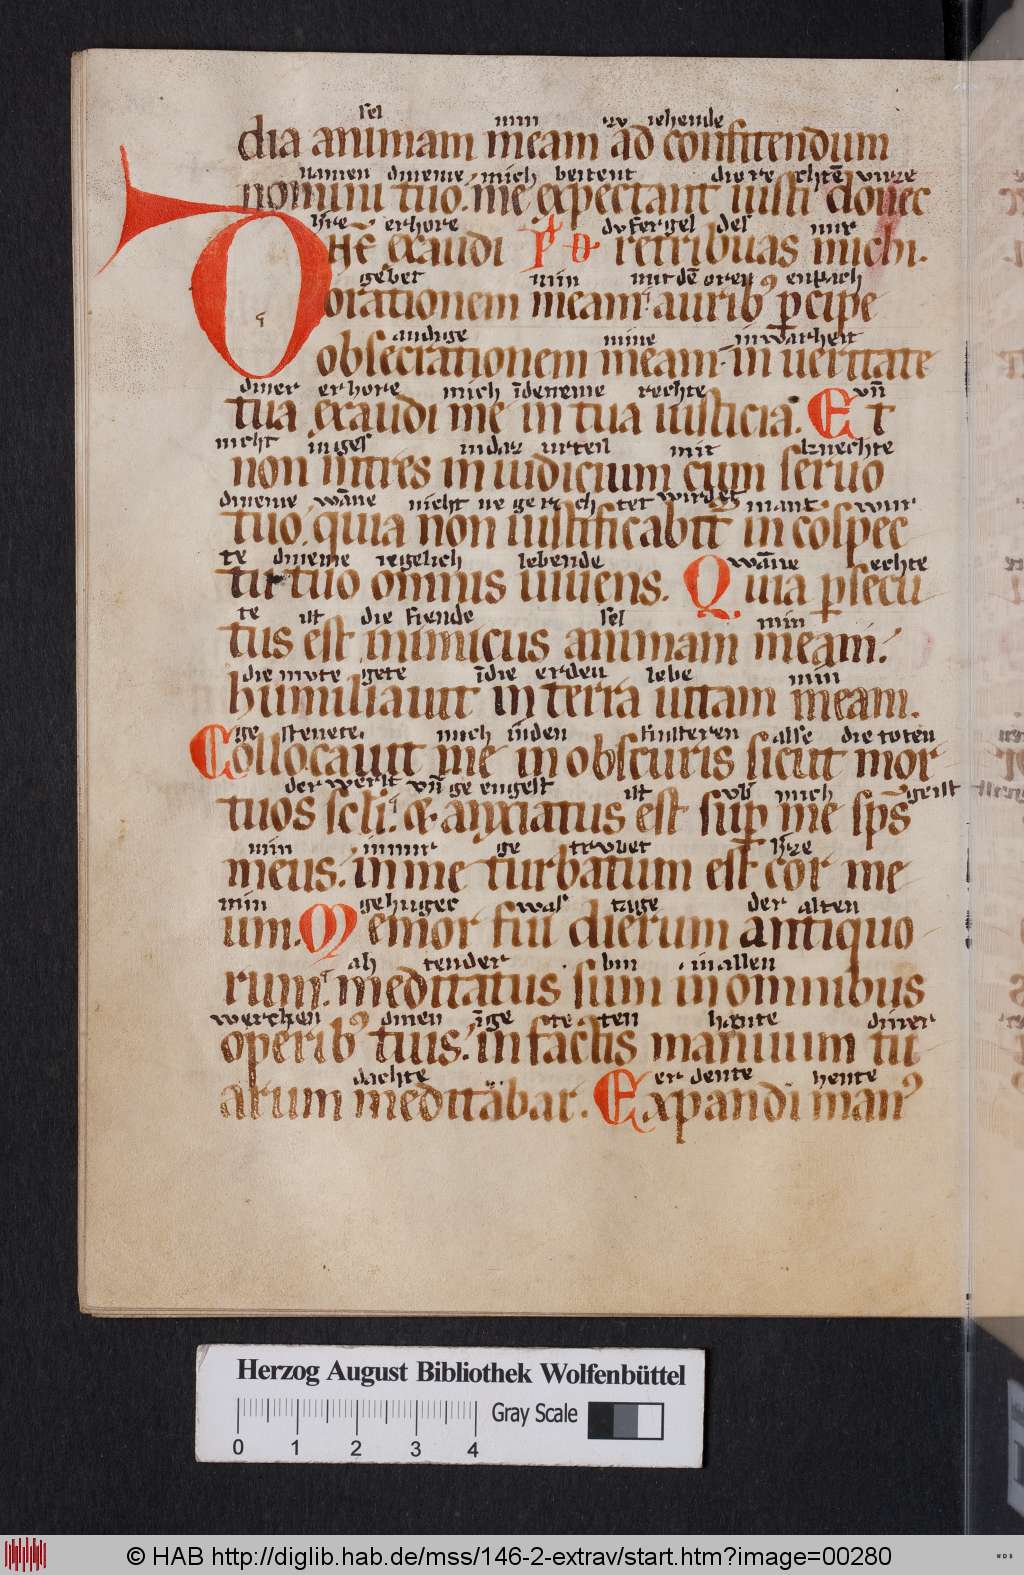 sel min zv iehende
dia animam meam ad confitendum
namen dineme mich beitent die re chtē vnze
nomini tuo: me expectant iusti donec
h're erhore dv fergel des mir
DÑE exaudi Ps D retribuas michi.
gebet min mit dē oren enphach
orationem meam auribꝰ pcipe
andige mine inwarheit
obsecrationem meam in ueritate
diner erhore mich īdeneme rechte vn̄
tua exaudi me in tua iusticia. Et
nicht inges indaz urteil mit knechte
non intres in iudicium cum seruo
dineme wāne nicht ne gerech tet wirdet mant wur
tuo: quia non iustificabit in cōspec
te dineme iegelich lebende wāne echte
tu tuo omnis uiuens. Quia psecu
te ist die fiende sel min
tus est inimicus animam meam:
die mvte gete īdie erden lebe min
humiliauit in terra uitam meam.
ge stenete. mich inden finsteren alse die toten
Collocauit me in obscuris sicut mor
der werlt vn̄ ge engest ist vb mich geist
tuos scli: & anxiatus est sup me sps
min inmir ge trvbet h'ze
meus. in me turbatum est cor me
min gehuget was tage der alten
um. Memor fui dierum antiquo
ah tender bin in allen
rum: meditatus sum in omnibus
werchen dinen īge te ten hante diner
operibꝰ tuis: in factis manuum tu
dachte er dente hente
arum meditabar. Expandi manꝰ
Herzog August Bibliothek Wolfenbüttel
Gray Scale
0 1 2 3 4
© HAB http://diglib.hab.de/mss/146-2-extrav/start.htm?image=00280